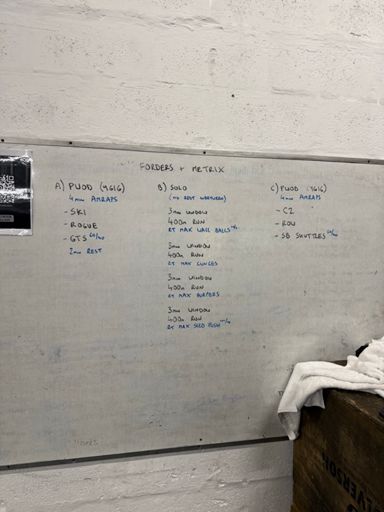 FORDERS + METRIX
A) PUOD (YGIG)
4min AMRAPS
- SKI
- ROGUE
- GTS
2min REST
B) SOLO
(NO REST BETWEEN)
3min WINDOW
400m RUN
RT MAX WALL BALLS
3min WINDOW
400m RUN
RT MAX LUNGES
3min WINDOW
400m RUN
RT MAX BURPEES
3min WINDOW
400m RUN
RT MAX SLED PUSH
C) PUOD (YGIG)
4min AMRAPS
- C2
- ROW
- SB SHUTTLES